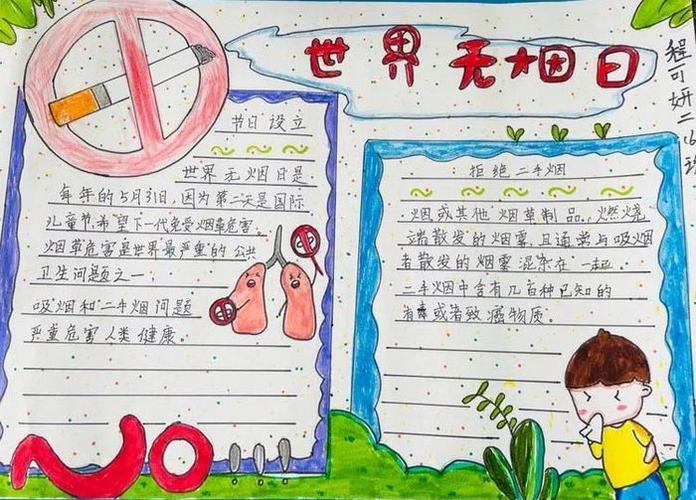 世界无烟日
程可妍二(6)班
节日设立
世界无烟日是
每年的5月31日,因为第二天是国际
儿童节,希望下一代免受烟草危害。
烟草危害是世界最严重的公共
卫生问题之一,
吸烟和二手烟问题
严重危害人类健康。
拒绝二手烟
烟或其他烟草制品,燃烧
端散发的烟雾,且通常与吸烟
者散发的烟雾混杂在一起。
二手烟中含有几百种已知的
有毒或者致癌物质。
NO!!!